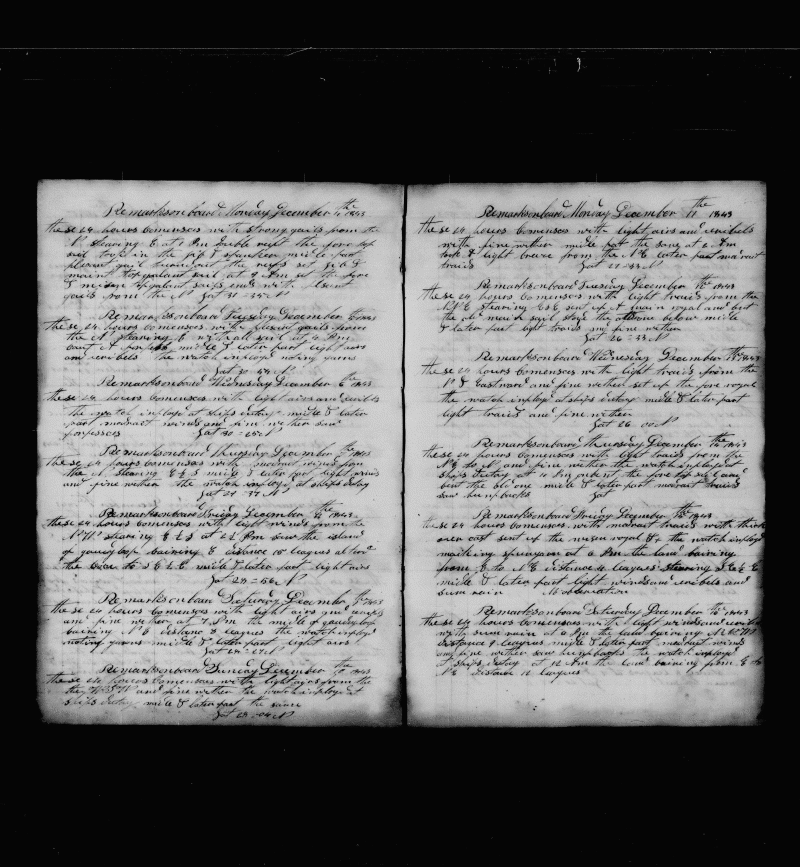 Remarks on board Monday December 4th 1843
these 24 hours comenses with strong gails from the
N stearing E at 1 Pm duble reeft the fore top
sail took in the jib & spanker midle part
plesent gail turned out the reefs set jib &
maint topgalant sail at 9 Am set the fore
& misen topgalant sails ends with plesent
gails from the N Lat 31=35 N
Remarks on board Tuesday December 5 1843
these 24 hours comenses with plesent gails from
the N stearing E with all sail set at 4 Pm
midle & later part light airs
and veribels the watch imployd making yarns
Lat 30 N
Remarks on board Wednesday December 6th 1843
these 24 hours comenses with light airs and veribls
the watch imployd at ships dutey midle & later
part modrait winds and fine wether saw
porposses Lat 30=
Remarks on board Thursday December th 1843
these 24 hours comenses with modrait winds from
the N stearing E & S midle & later part light airs
and fine wether the watch imployd at ships dutey
Lat 29=37 N
Remarks on board Friday December th 1843
these 24 hours comenses with light winds from the
stearing E & S at 2½ Pm saw the island
of bairing E distance 15 leagues altrd
the corse to S E & E midle & later part light airs
Lat 28=56 N
Remarks on board Saturday December 9th 1843
these 24 hours comenses with light airs and veribls
and fine wether at 7 Pm the midle of
bairing N E distane 8 leagues the watch imployd
making yarns midle & later part light airs
Lat N
Remarks on board Sunday December th 1843
these 24 hours comenses with light airs from the
and fine wether the watch imployd at
ships dutey midle & later part the same
Lat 28=04 N
Remarks on board Monday December 11th 1843
these 24 hours comenses with light airs and veribels
with fine wether midle part the same at 6 Am
took a light breze from the N E later part modrait
traids Lat 27=33 N
Remarks on board Tuesday December 12th 1843
these 24 hours comenses with light traids from the
N E stearing S & E sent up the main royal and but
the N main sail stode the below midle
& later part light traids and fine wether
Lat 26=33 N
Remarks on board Wednesday December 13th 1843
these 24 hours comenses with light traids from the
N & Eastward and fine wether set up the fore royal
the watch imployd at ships dutey midle & later part
light traids and fine wether
Lat 26=00 N
Remarks on board Thursday December 14th 1843
these 24 hours comenses with light traids from the
N E to N and fine wether the watch imployd at
ships dutey at 4 Pm onbent the fore top sail and
bent the old one midle & later part modrait traids
saw hunpbacks Lat
Remarks on board Friday December 15th 1843
these 24 hours comenses with modrait traids with thick
over cast sent up the misen royal the watch imployd
making spunyarn at 6 Pm the land bairing
from E to N E distance 4 leagues stearing S E & E
midle & later part light winds and veribels and
sum rain No observation
Remarks on board Saturday December 16th 1843
these 24 hours comenses with light winds and veribls
with sum rain at 6 Pm the land bairing
distance 9 leagues midle & later part modrait winds
and fine wether saw hunpbacks the watch imployd
at ships dutey at 12 Am the land bairing from E to
N E distance 12 leagues